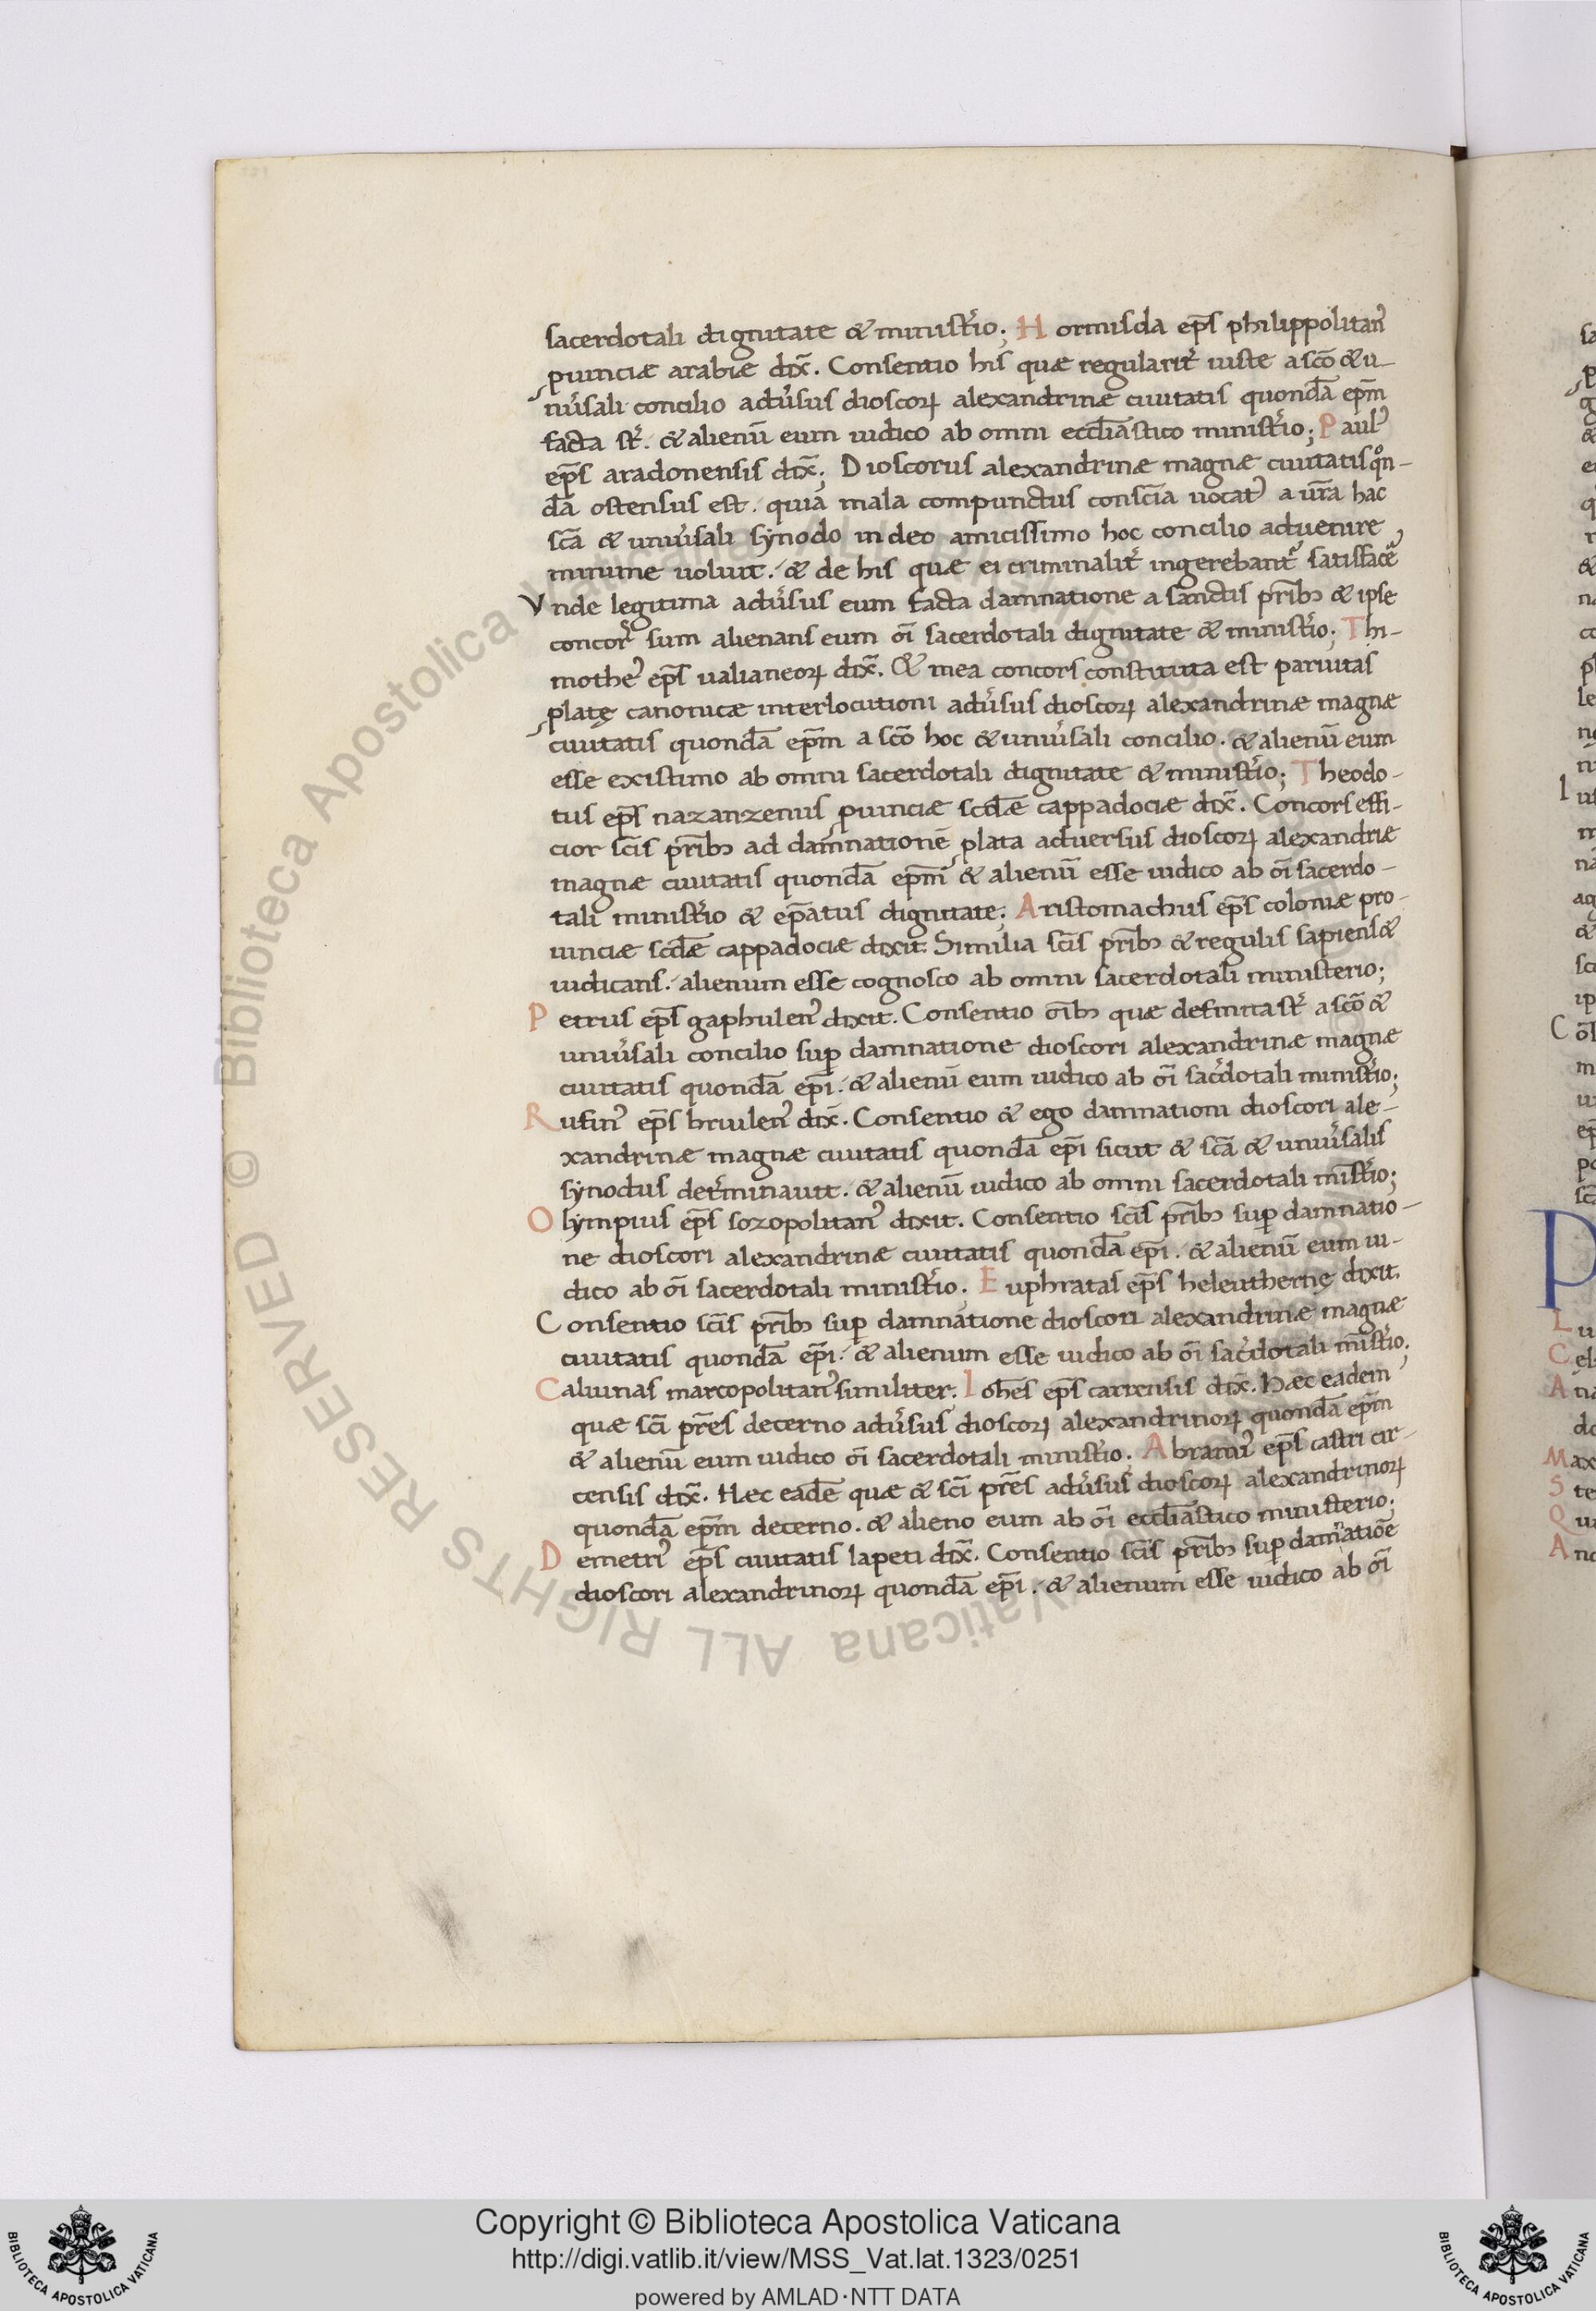 sacerdotali dignitate & minist̃io; Hormisda ep̃s philippolitan᾽
ꝓuinciæ arabiæ dix̃. Consentio his quæ regularit̃ iuste a sc̃o & u–
niũsali concilio adũsus dioscoꝝ alexandrinæ ciuitatis quondã ep̃m
facta st̃. & alienũ eum iudico ab omni eccl̃iastico minist̃io; Paul᾽
ep̃s aradonensis dix̃; Dioscorus alexandrinæ magnæ ciuitatis qͦn–
dã ostensus est. quia mala compunctus consc̃ia uocat᾽ a ur̃a hac
sc̃a & uniũsali synodo in deo amicissimo hoc concilio aduenire
minime uoluit. & de his quæ ei criminalit̃ ingerebant᾽ satisfacẽ
Vnde legitima adũsus eum facta damnatione a sanctis pr̃ibꝫ & ipse
concor᾽ sum alienans eum oĩ sacerdotali dignitate & minist̃io; Thi–
mothe᾽ ep̃s ualianeoꝝ dix̃. & mea concors constituta est paruitas
ꝓlatę canonicæ interlocutioni adũsus dioscoꝝ alexandrinæ magnæ
ciuitatis quondã ep̃m a sc̃o hoc & uniũsali concilio. & alienũ eum
esse existimo ab omni sacerdotali dignitate & minist̃io; Theodo–
tus ep̃s nazanzenus ꝓuinciæ scd̃æ cappadociæ dix̃. Concors effi–
cior sc̃is pr̃ibꝫ ad damnationẽ ꝓlata aduersus dioscoꝝ alexandriæ
magnæ ciuitatis quondã ep̃m & alienũ esse iudico ab oĩ sacerdo–
tali minist̃io & ep̃atus dignitate; Aristomachus ep̃s coloniæ pro–
uinciæ scd̃æ cappadociæ dixit. Similia sc̃is pr̃ibꝫ & regulis sapiens &
iudicans. alienum esse cognosco ab omni sacerdotali ministerio;
Petrus ep̃s gaphulen᾽ dixit. Consentio oĩbꝫ quæ definita st̃ a sc̃o &
uniũsali concilio suꝑ damnatione dioscori alexandrinæ magnæ
ciuitatis quondã ep̃i. & alienũ eum iudico ab oĩ sac̃dotali minist̃io;
Rufin᾽ ep̃s briulen᾽ dix̃. Consentio & ego damnationi dioscori ale–
xandrinæ magnæ ciuitatis quondã ep̃i sicut & sc̃a & uniũsalis
synodus det̃minauit. & alienũ iudico ab omni sacerdotali mĩst̃io;
Olympius ep̃s sozopolitan᾽ dixit. Consentio sc̃is pr̃ibꝫ suꝑ damnatio–
ne dioscori alexandrinæ ciuitatis quondã ep̃i. & alienũ eum iu–
dico ab oĩ sacerdotali minist̃io. Euphratas ep̃s heleuthernę dixit.
Consentio sc̃is pr̃ibꝫ suꝑ damnatione dioscori alexandrinæ magnæ
ciuitatis quondã ep̃i. & alienum esse iudico ab oĩ sac̃dotali mĩst̃io;
Caluinas marcopolitan᾽ similiter. Ioh̃es ep̃s carrensis dix̃. Hæc eadem
quæ sc̃i pr̃es decerno adũsus dioscoꝝ alexandrinoꝝ quondã ep̃m
& alienũ eum iudico oĩ sacerdotali minist̃io. Abrami᾽ ep̃s castri cir–
censis dix̃. Hec eadẽ quæ & sc̃i pr̃es adũsus dioscoꝝ alexandrinoꝝ
quondã ep̃m decerno. & alieno eum ab oĩ eccl̃iastico ministerio;
Demetri᾽ ep̃s ciuitatis lapeti dix̃. Consentio sc̃is pr̃ibꝫ suꝑ damnatiõe
dioscori alexandrinoꝝ quondã ep̃i. & alienum esse iudico ab oĩ
© Biblioteca Apostolica Vaticana ALL RIGHTS RESERVED
Copyright © Biblioteca Apostolica Vaticana
http://digi.vatlib.it/view/MSS_Vat.lat.1323/0251
powered by AMLAD·NTT DATA
BIBLIOTECA APOSTOLICA VATICANA
BIBLIOTECA APOSTOLICA VATICANA